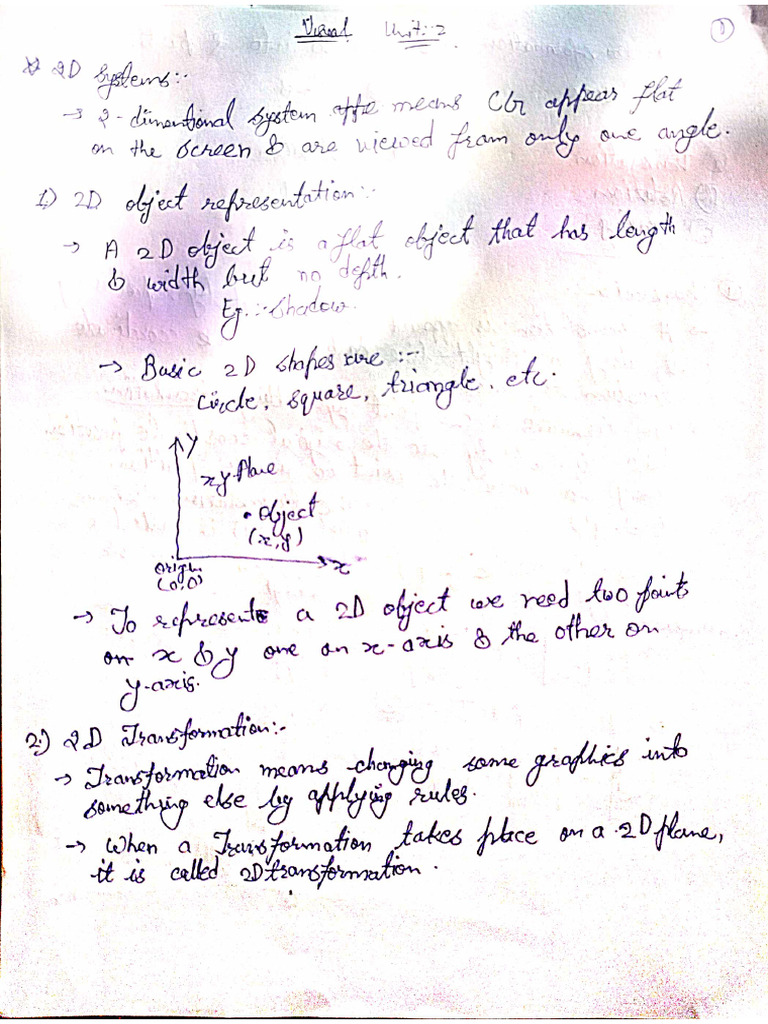 Visual Unit:-2
1
* 2D Systems:-
→ 2-dimentional system means Obj appear flat
on the screen & are viewed from only one angle.
1.) 2D object representation:-
→ A 2D object is a flat object that has length
& width but no depth.
Eg.:- Shadow.
→ Basic 2D shapes are :-
Circle, square, triangle, etc.
y
xy-Plane
• object
(x,y)
origin
(0,0)
x
→ To represent a 2D object we need two points
on x & y one on x-axis & the other on
y-axis.
2.) 2D Transformation:-
→ Transformation means changing some graphics into
something else by applying rules.
→ When a Transformation takes place on a 2D plane,
it is called 2D transformation.